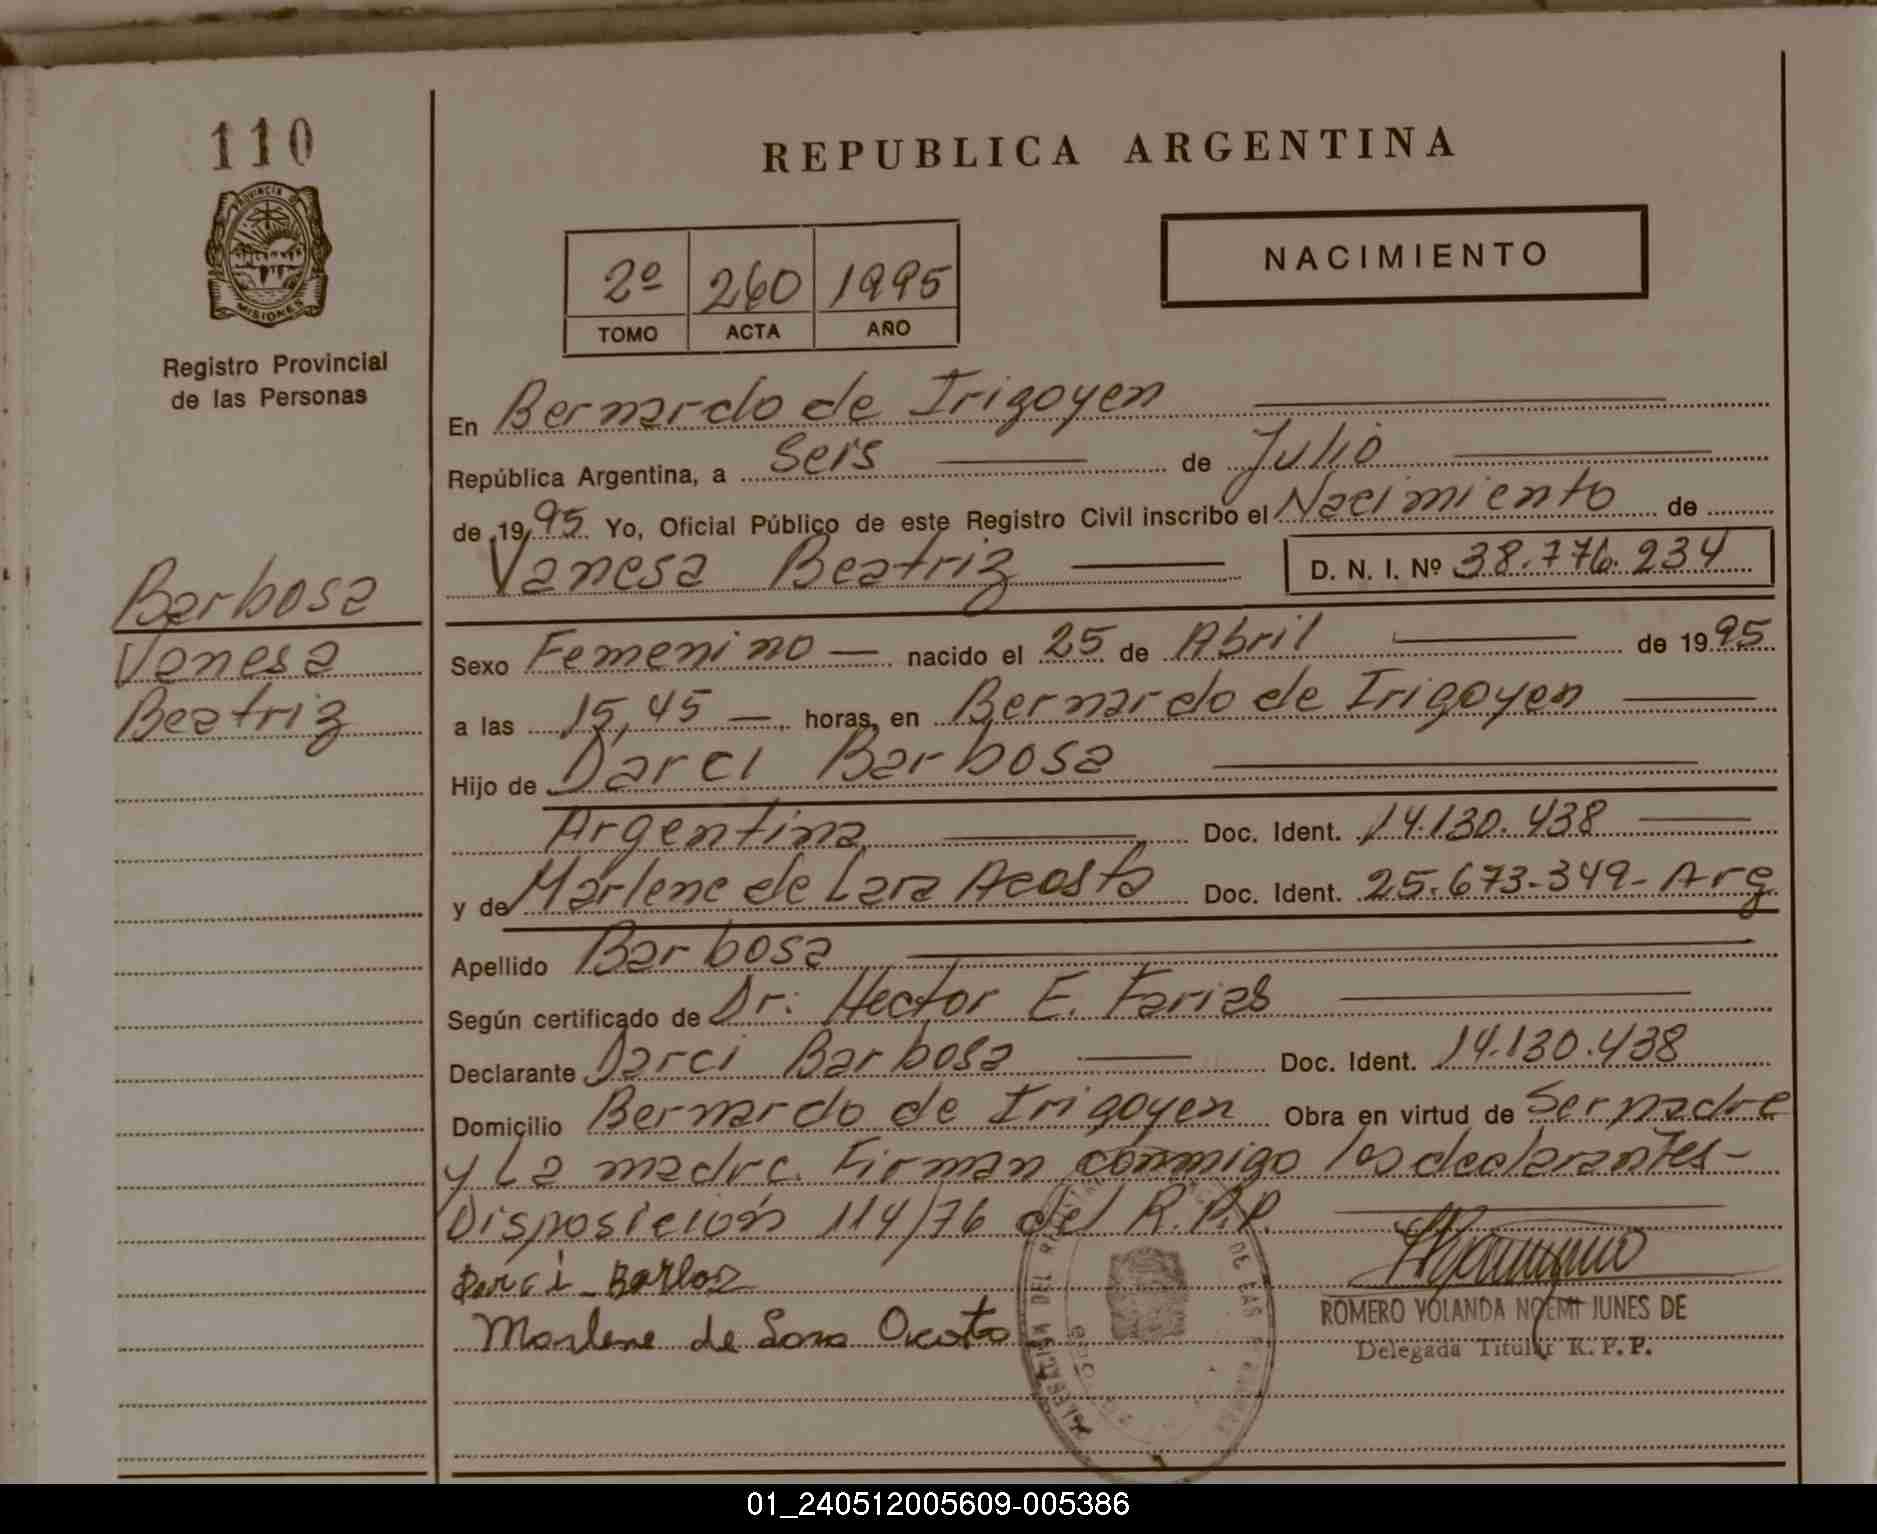 110
PROVINCIA DE
MISIONES
Registro Provincial
de las Personas
Barbosa
Vanesa
Beatriz
REPUBLICA ARGENTINA
2º 260 1995
TOMO ACTA AÑO
NACIMIENTO
En Bernardo de Irigoyen
República Argentina, a Seis de Julio
de 1995 Yo, Oficial Público de este Registro Civil inscribo el Nacimiento de
Vanesa Beatriz D. N. I. Nº 38.776.234
Sexo Femenino — nacido el 25 de Abril de 1995
a las 15,45 — horas, en Bernardo de Irigoyen
Hijo de Darci Barbosa
Argentina Doc. Ident. 14.130.438
y de Marlene de Lara Acosta Doc. Ident. 25.673.349- Arg
Apellido Barbosa
Según certificado de Dr. Hector E. Farias
Declarante Darci Barbosa Doc. Ident. 14.130.438
Domicilio Bernardo de Irigoyen Obra en virtud de Ser padre
y La madre. Firman conmigo los declarantes-
Disposición 114/76 del R.P.P.
Darci
Marlene de
DE LAS
ROMERO YOLANDA NOEMI JUNES DE
Delegada Titular R. P. P.
01_240512005609-005386